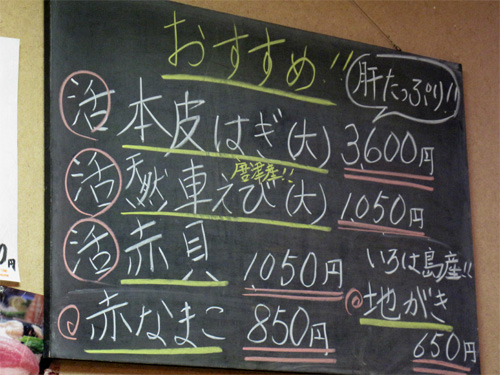 おすすめ!!
肝たっぷり!!
活 本皮はぎ(大) 3,600円
唐津産!!
活 天然車えび(大) 1,050円
活 赤貝 1050円
赤なまこ 850円
いろは島産!!
地がき
650円
0円